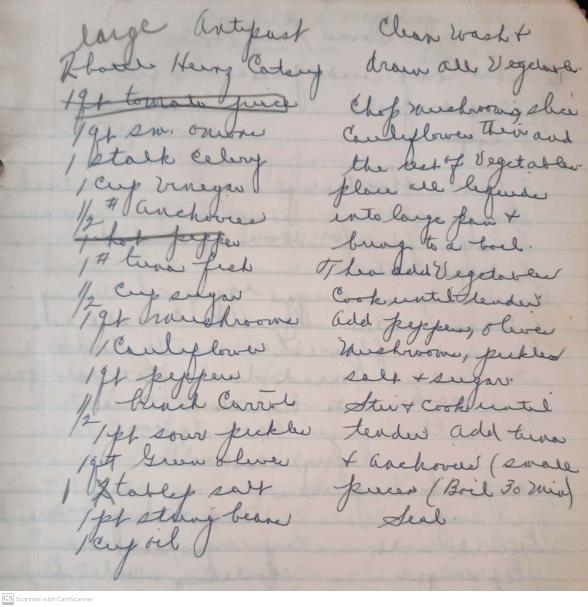 large Antipast
2 bottle Heinz Catsup
1 qt tomato juice
1 qt sm. onions
1 stalk celery
1 cup vinegar
1/2 # Anchovies
1 hot pepper
1 # tuna fish
1/2 cup sugar
1 qt mushrooms
1 Cauliflower
1 qt peppers
1/2 bunch Carrots
1 pt sour pickles
1 qt Green olives
1 tablsp salt
1 pt string beans
1 cup oil
Clean Wash &
drain all Vegetables.
Chop mushrooms, slice
Cauliflower thin and
the rest of Vegetables
place all liquids
into large pan &
bring to a boil.
Then add Vegetables
Cook until tender
add peppers, olives
Mushrooms, pickles
salt & sugar.
Stir & Cook until
tender add tuna
& Anchovies (small
pieces (Boil 30 min)
Seal
CS Scanned with CamScanner